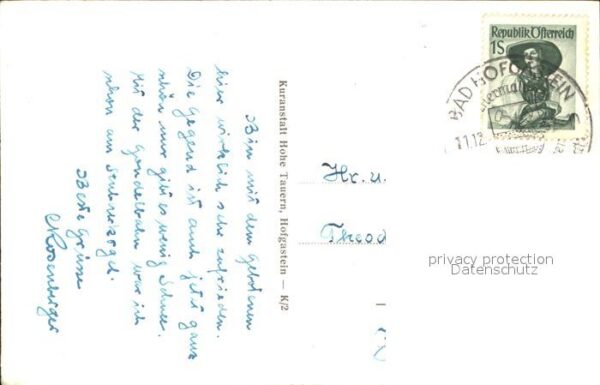 Bin mit dem Gebotenen
hier wirklich sehr zufrieden.
Die Gegend ist auch jetzt ganz
schön nur gibt es wenig Schnee.
Mit der Gondelbahn war ich
schon am
Beste Grüsse
Rosenberger
Kuranstalt Hohe Tauern, Hofgastein — K/2
Hr. u.
Theod
Republik Österreich
1S
BAD HOFGASTEIN
11.12
privacy protection
Datenschutz